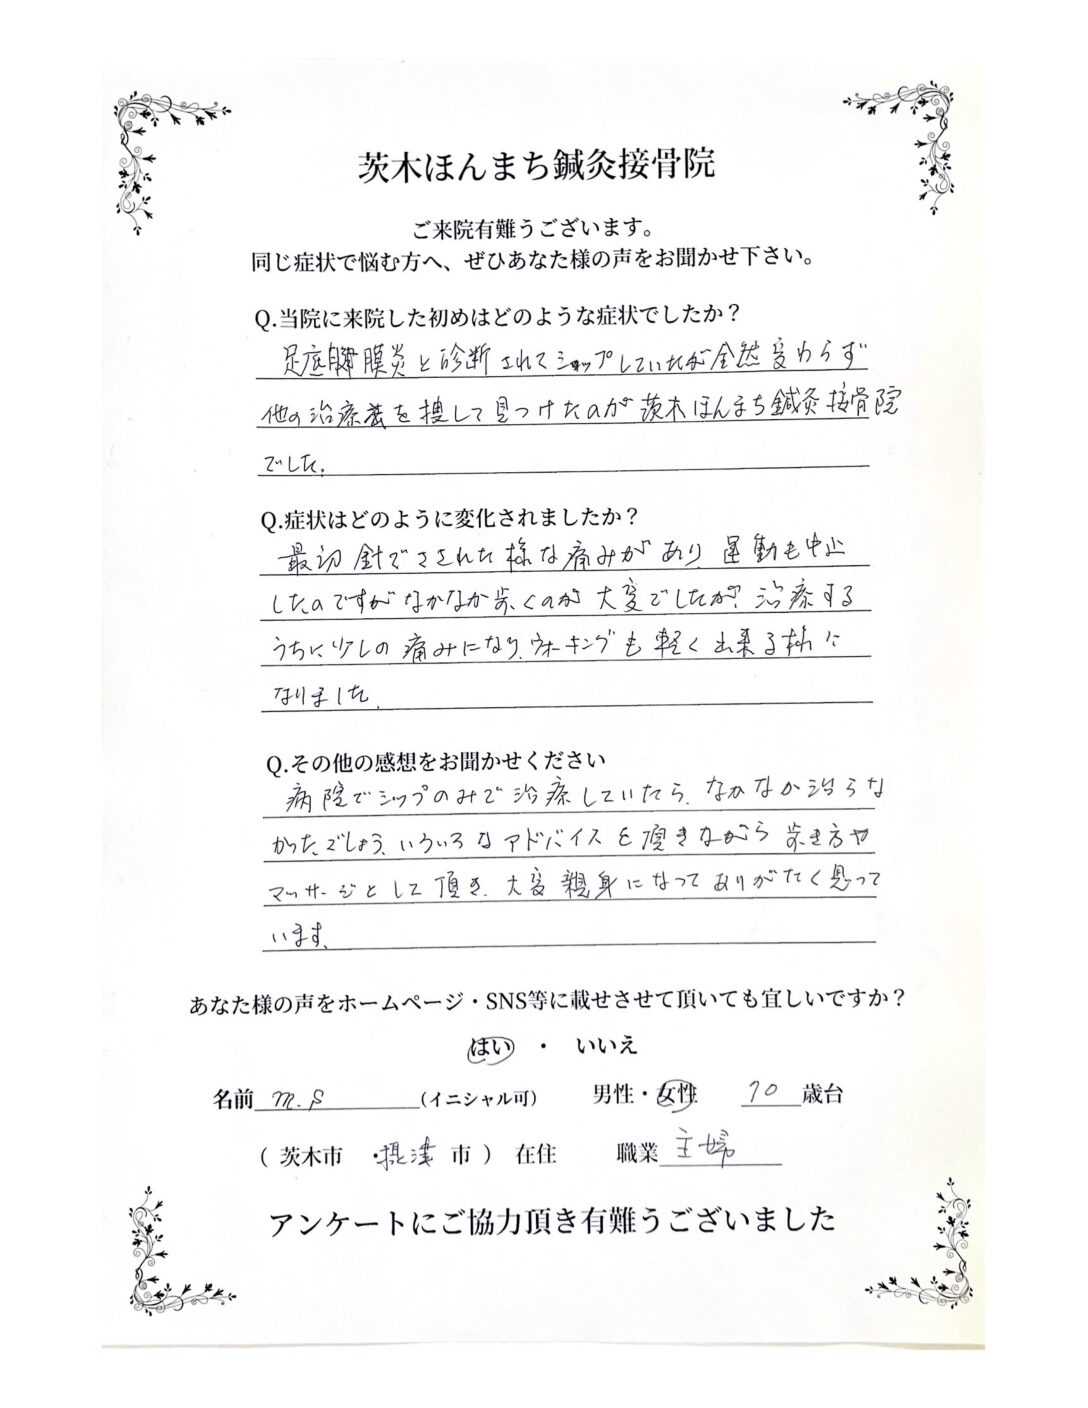 茨木ほんまち鍼灸接骨院
ご来院有難うございます。
同じ症状で悩む方へ、ぜひあなた様の声をお聞かせ下さい。
Q.当院に来院した初めはどのような症状でしたか？
足底腱膜炎と診断されてシップしていたが全然変わらず
他の治療法を捜して見つけたのが茨木ほんまち鍼灸接骨院
でした。
Q.症状はどのように変化されましたか？
最初針でさされた様な痛みがあり、運動も中止
したのですがなかなか歩くのが大変でしたが、治療する
うちに少しの痛みになり、ウォーキングも軽く出来る様に
なりました。
Q.その他の感想をお聞かせください
病院でシップのみで治療していたら、なかなか治らな
かったでしょう、いろいろなアドバイスを頂きながら歩き方や
マッサージとして頂き、大変親身になってありがたく思って
います。
あなた様の声をホームページ・SNS等に載せさせて頂いても宜しいですか？
はい ・ いいえ
名前 M.S (イニシャル可) 男性・女性 70 歳台
( 茨木市 ・摂津 市 ) 在住 職業 主婦
アンケートにご協力頂き有難うございました